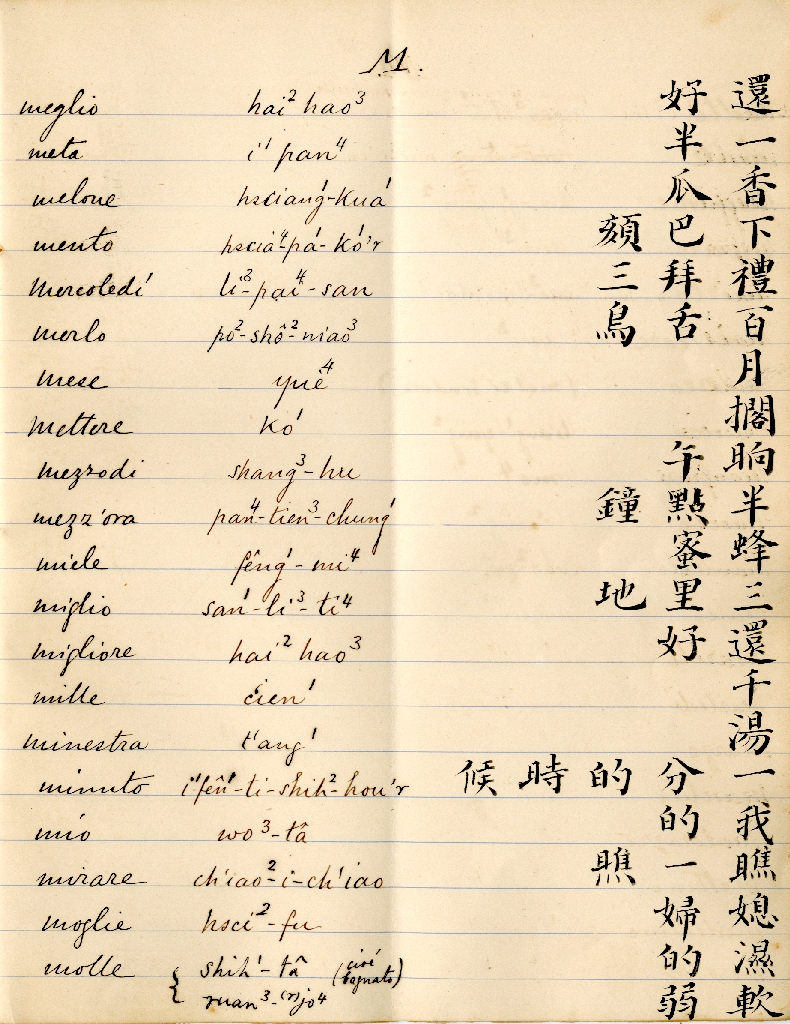 M.
meglio hai² hao³ 還好
meta i¹ pan⁴ 一半
melone hsciang¹-kua¹ 香瓜
mento hscia⁴-pa¹-ko¹'r 下巴頦
Mercoledì li³-pai⁴-san 禮拜三
merlo po²-shô²-niao³ 百舌鳥
mese yuê⁴ 月
mettere ko¹ 擱
mezzodì shang³-hu 晌午
mezz'ora pan⁴-tien³-chung¹ 半點鐘
miele fêng¹-mi⁴ 蜂蜜
miglio san¹-li³-ti⁴ 三里地
migliore hai² hao³ 還好
mille cien¹ 千
minestra t'ang¹ 湯
minuto i¹fên¹-ti-shih²-hou'r 一分的時候
mio wo³-tâ 我的
mirare ch'iao²-i-ch'iao 瞧一瞧
moglie hsci²-fu 媳婦
molle { shih¹-tâ (cioè bagnato) 濕的
ruan³-(r)jo⁴ 軟弱